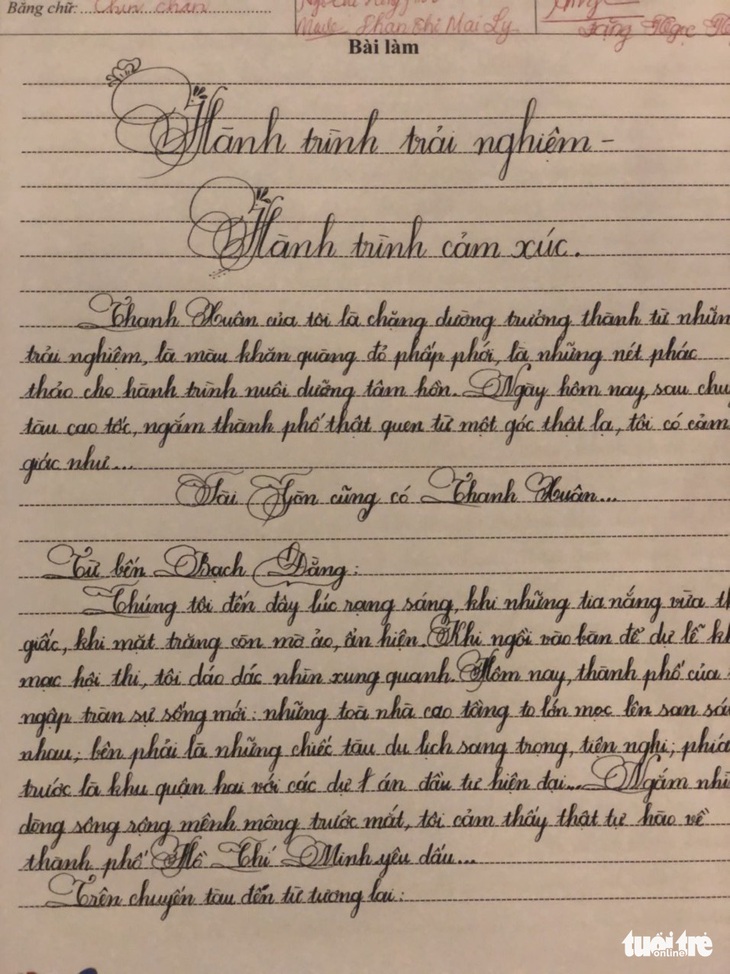 Bằng chữ: Chín chấn
Phan Thị Mai Ly
Tạng Ngọc
Bài làm
Hành trình trải nghiệm -
Hành trình cảm xúc.
Thanh Xuân của tôi là chặng đường trưởng thành từ những
trải nghiệm, là màu khăn quàng đỏ phấp phới, là những nét phác
thảo cho hành trình nuôi dưỡng tâm hồn. Ngày hôm nay, sau chu
tàu cao tốc, ngắm thành phố thật quen từ một góc thật lạ, tôi có cảm
giác như...
Sài Gòn cũng có Thanh Xuân...
Từ bến Bạch Đằng:
Chúng tôi đến đây lúc rạng sáng, khi những tia nắng vừa th
giấc, khi mặt trăng còn mờ ảo, ẩn hiện. Khi ngồi vào bàn để dự lễ kh
mạc hội thi, tôi dáo dác nhìn xung quanh. Hôm nay, thành phố của
ngập tràn sự sống mới: những toà nhà cao tầng to lớn mọc lên san sá
nhau; bên phải là những chiếc tàu du lịch sang trọng, tiện nghi; phía
trước là khu quận hai với các dự án đầu tư hiện đại... Ngắm nhì
dòng sông rộng mênh mông trước mắt, tôi cảm thấy thật tự hào về
thành phố Hồ Chí Minh yêu dấu...
Trên chuyến tàu đến từ tương lai:
tuổi trẻ
online